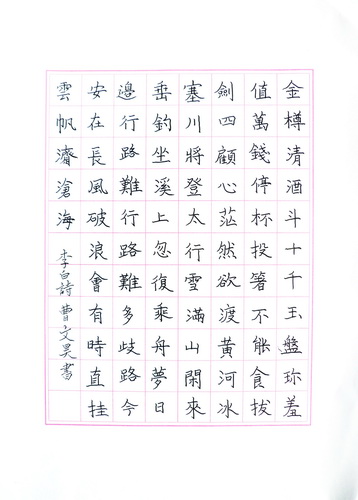 金樽清酒斗十千玉盤珎羞
值萬錢停杯投箸不能食拔
劍四顧心茫然欲渡黃河冰
塞川將登太行雪滿山閑來
垂釣坐溪上忽復乘舟夢日
邊行路難行路難多歧路今
安在長風破浪會有時直挂
雲帆濟滄海
李白詩曹文昊書